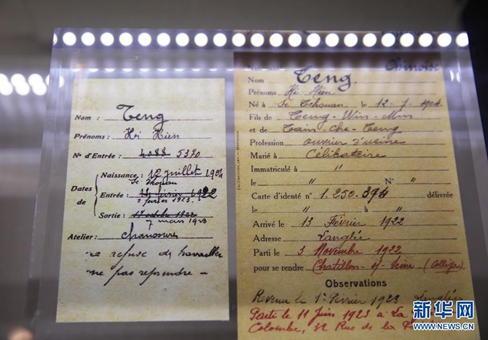 Nom : Teng
Prénoms : Hi Hien
N° d'Entrée : 5370
Naissance : 12 juillet 1904
Dates de
Entrée : 14 février 1922
2 février 1923.
Sortie :
7 mars 1923
Atelier : Chaussure
a refusé de travailler
ne pas reprendre —
Chinois
Nom Teng
Prénoms Hi Hien
Né à Se Tchouan , le 12-7-1904
Fils de Teng-Win-Min
et de Tam-Che-Teng
Profession ouvrier d'usine
Marié à Célibataire
Immatriculé à "
le "
Carte d'identé n° 1.250.394 délivrée
à " le "
Arrivé le 13 Février 1922
Adresse Langlée
Parti le 3 Novembre 1922
pour se rendre Chatillon-s/-Seine (Collège)
Observations
Revenu le 1er Février 1923 Langlée
Parti le 11 Juin 1923 à La
Colombe, 32 Rue de la
新华网
WWW.NEWS.CN